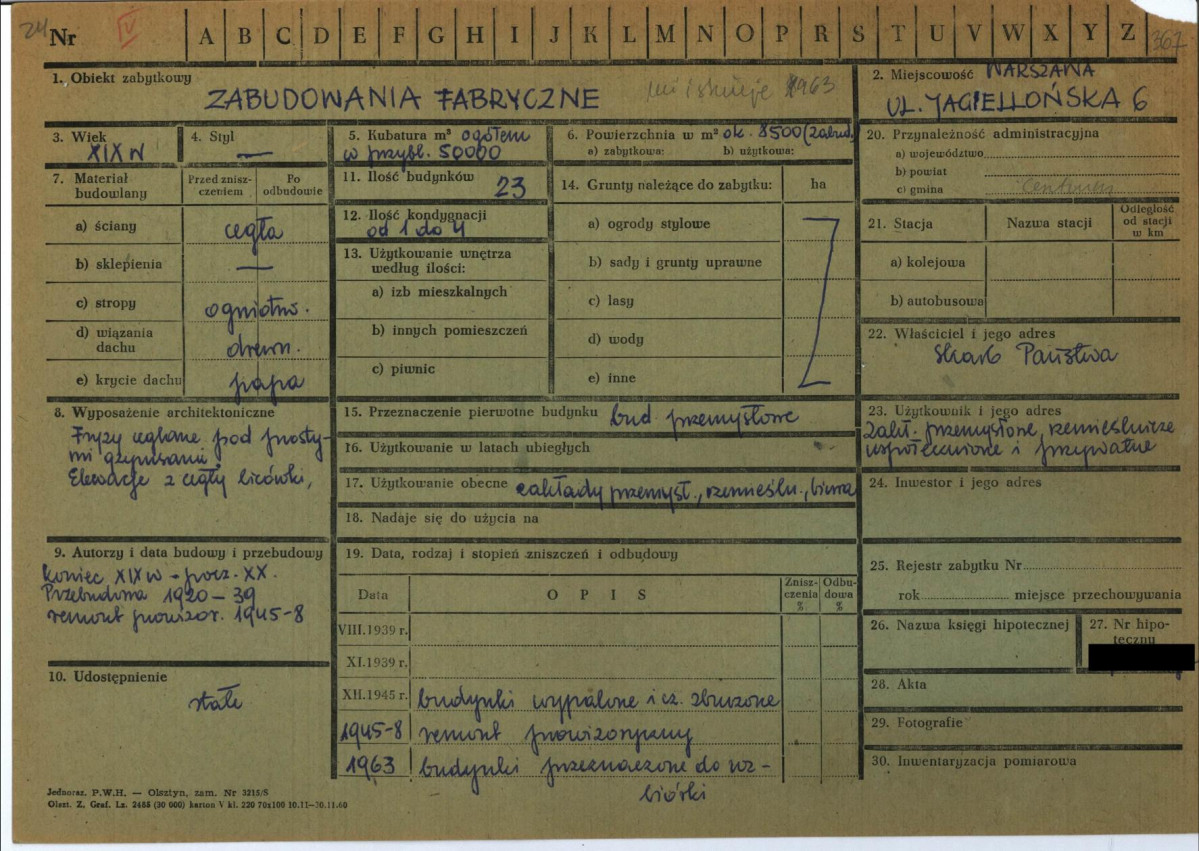 24 Nr IV A B C D E F G H I J K L M N O P R S T U V W X Y Z 367
1. Obiekt zabytkowy
ZABUDOWANIA FABRYCZNE
nie istnieje 1963
2. Miejscowość WARSZAWA
UL. JAGIELLOŃSKA 6
3. Wiek
XIX w
4. Styl
—
5. Kubatura m³ ogółem
w przybl. 50000
6. Powierzchnia w m² ok. 8500 (zabud.)
a) zabytkowa: b) użytkowa:
7. Materiał budowlany
Przed zniszczeniem
Po odbudowie
a) ściany cegła
b) sklepienia —
c) stropy ogniotrw.
d) wiązania dachu drewn.
e) krycie dachu papa
8. Wyposażenie architektoniczne
Fryzy ceglane pod prosty-
mi gzymsami,
Elewacje z cegły licówki,
9. Autorzy i data budowy i przebudowy
koniec XIX w – pocz. XX.
Przebudowa 1920–39
remont prowizor. 1945-8
10. Udostępnienie
stałe
11. Ilość budynków 23
12. Ilość kondygnacji
od 1 do 4
13. Użytkowanie wnętrza
według ilości:
a) izb mieszkalnych
b) innych pomieszczeń
c) piwnic
14. Grunty należące do zabytku: ha
a) ogrody stylowe
b) sady i grunty uprawne
c) lasy
d) wody
e) inne
15. Przeznaczenie pierwotne budynku bud. przemysłowe
16. Użytkowanie w latach ubiegłych
17. Użytkowanie obecne zakłady przemysł., rzemieśln., biura
18. Nadaje się do użycia na
19. Data, rodzaj i stopień zniszczeń i odbudowy
Data OPIS Zniszczenia % Odbudowa %
VIII.1939 r.
XI.1939 r.
XII.1945 r. budynki wypalone i cz. zburzone
1945-8 remont prowizoryczny
1963 budynki przeznaczone do roz-
biórki
20. Przynależność administracyjna
a) województwo
b) powiat
c) gmina
21. Stacja Nazwa stacji Odległość od stacji w km
a) kolejowa
b) autobusowa
22. Właściciel i jego adres
Skarb Państwa
23. Użytkownik i jego adres
Zakł. przemysłowe, rzemieślnicze
uspołecznione i prywatne
24. Inwestor i jego adres
25. Rejestr zabytku Nr
rok miejsce przechowywania
26. Nazwa księgi hipotecznej
27. Nr hipo-
teczny
28. Akta
29. Fotografie
30. Inwentaryzacja pomiarowa
Jednoraz. P.W.H. — Olsztyn, zam. Nr 3215/S
Olszt. Z. Graf. Lz. 2485 (30 000) karton V kl. 220 70x100 10.11—30.11.60